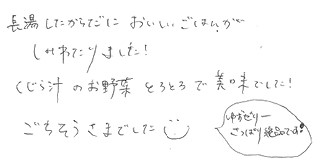 長湯したからだに おいしいごはんが
しみわたりました!
くじら汁のお野菜 とろとろで美味でした!
ごちそうさまでした
ゆずゼリー
さっぱり絶品です!